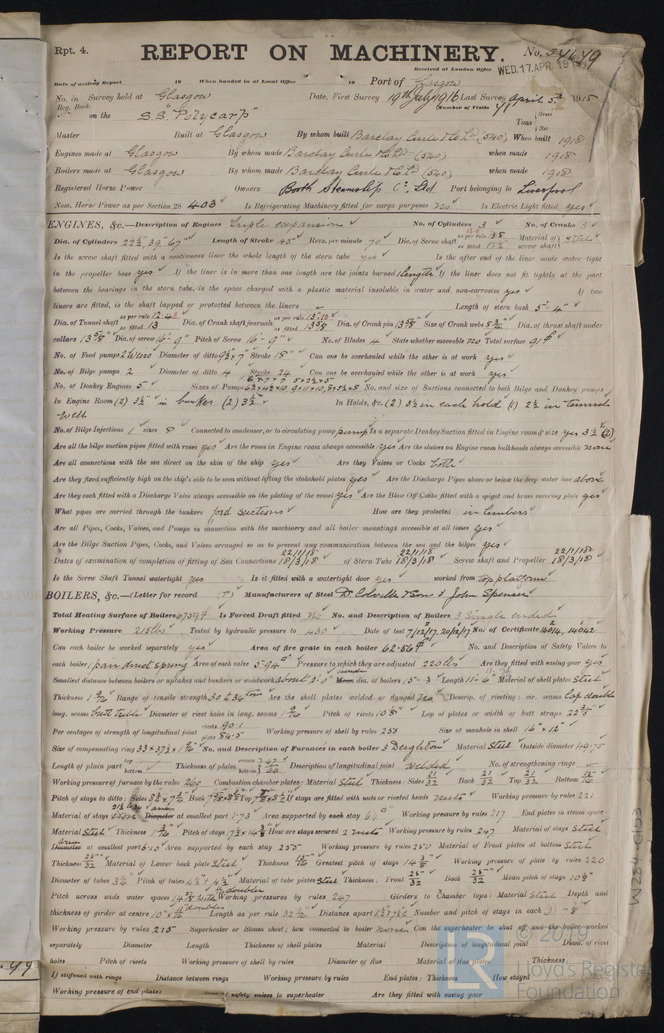 Rpt. 4.
REPORT ON MACHINERY.
No. 34649
Received at London Office WED. 17. APR. 19
Date of writing Report 19 When handed in at Local Office 19 Port of Glasgow
No. in Survey held at Glasgow Date, First Survey 19th July 1916 Last Survey April 5th 1918
Reg. Book. (Number of Visits
on the S.S. "Polycarp" Tons { Gross Net
Master Built at Glasgow By whom built Barclay Curle & Co Ld (540) When built 1918
Engines made at Glasgow By whom made Barclay Curle & Co Ld (540) when made 1918
Boilers made at Glasgow By whom made Barclay Curle & Co Ld (540) when made 1918
Registered Horse Power Owners Booth Steamship Co. Ltd Port belonging to Liverpool
Nom. Horse Power as per Section 28 403 Is Refrigerating Machinery fitted for cargo purposes no Is Electric Light fitted yes
ENGINES, &c.—Description of Engines Triple expansion No. of Cylinders 3 No. of Cranks 3
Dia. of Cylinders 22½, 39, 67" Length of Stroke 45" Revs. per minute 70 Dia. of Screw shaft as per rule as fitted Material of screw shaft Steel
Is the screw shaft fitted with a continuous liner the whole length of the stern tube yes Is the after end of the liner made water tight
in the propeller boss yes If the liner is in more than one length are the joints burned 1 length If the liner does not fit tightly at the part
between the bearings in the stern tube, is the space charged with a plastic material insoluble in water and non-corrosive yes If two
liners are fitted, is the shaft lapped or protected between the liners Length of stern bush 5'-4"
Dia. of Tunnel shaft as per rule 12.48 as fitted 13 Dia. of Crank shaft journals as per rule 13.10 as fitted 13⅝ Dia. of Crank pin 13⅝" Size of Crank webs Dia. of thrust shaft under
collars 13⅝" Dia. of screw 16'-9" Pitch of Screw 16'-9" No. of Blades 4 State whether moveable no Total surface 91
No. of Feed pumps 2 Weirs Diameter of ditto 9½ × 7 Stroke 18" Can one be overhauled while the other is at work yes
No. of Bilge pumps 2 Diameter of ditto 4 Stroke 24 Can one be overhauled while the other is at work yes
No. of Donkey Engines 5 Sizes of Pumps No. and size of Suctions connected to both Bilge and Donkey pumps
In Engine Room (2) 3½" in bunker (2) 3½ In Holds, &c. (2) 3½ in each hold (1) 2½ in tunnel
well
No. of Bilge Injections 1 sizes 8 Connected to condenser, or to circulating pump pump Is a separate Donkey Suction fitted in Engine room & size yes 3½
Are all the bilge suction pipes fitted with roses yes Are the roses in Engine room always accessible yes Are the sluices on Engine room bulkheads always accessible none
Are all connections with the sea direct on the skin of the ship yes Are they Valves or Cocks both
Are they fixed sufficiently high on the ship's side to be seen without lifting the stokehold plates yes Are the Discharge Pipes above or below the deep water line above
Are they each fitted with a Discharge Valve always accessible on the plating of the vessel yes Are the Blow Off Cocks fitted with a spigot and brass covering plate yes
What pipes are carried through the bunkers ford suctions How are they protected in timbers
Are all Pipes, Cocks, Valves, and Pumps in connection with the machinery and all boiler mountings accessible at all times yes
Are the Bilge Suction Pipes, Cocks, and Valves arranged so as to prevent any communication between the sea and the bilges yes
Dates of examination of completion of fitting of Sea Connections 22/1/18 18/3/18 of Stern Tube 22/1/18 18/3/18 Screw shaft and Propeller 22/1/18 18/3/18
Is the Screw Shaft Tunnel watertight yes Is it fitted with a watertight door yes worked from top platform
BOILERS, &c.—(Letter for record (T) Manufacturers of Steel D. Colville & Son & John Spencer
Total Heating Surface of Boilers Is Forced Draft fitted No No. and Description of Boilers 3 Single ended
Working Pressure 215 lbs Tested by hydraulic pressure to 430 Date of test 7/12/17, 20/12/17 No. of Certificate 14014, 14042
Can each boiler be worked separately yes Area of fire grate in each boiler No. and Description of Safety Valves to
each boiler 1 pair direct spring Area of each valve 3.94 Pressure to which they are adjusted 220 lbs Are they fitted with easing gear yes
Smallest distance between boilers or uptakes and bunkers or woodwork about 3'-0" dia. of boilers Length 11'-6" Material of shell plates Steel
Thickness Range of tensile strength 30 to 34 tons Are the shell plates welded or flanged no Descrip. of riveting: cir. seams Lap double
long. seams butt treble Diameter of rivet holes in long. seams Pitch of rivets 10⅛" Lap of plates or width of butt straps
Per centages of strength of longitudinal joint rivets 90.1 plate 84.5 Working pressure of shell by rules Size of manhole in shell 16" × 12"
Size of compensating ring No. and Description of Furnaces in each boiler 3 Deighton Material Steel Outside diameter
Length of plain part top bottom Thickness of plates crown bottom Description of longitudinal joint welded No. of strengthening rings
Working pressure of furnace by the rules 260 Combustion chamber plates: Material Steel Thickness: Sides 21/32 Back 21/32 Top 21/32 Bottom
Pitch of stays to ditto: Sides Back Top If stays are fitted with nuts or riveted heads nuts Working pressure by rules 221
Material of stays Steel at smallest part 1.73 Area supported by each stay Working pressure by rules 217 End plates in steam space:
Material Steel Thickness Pitch of stays How are stays secured 2 nuts Working pressure by rules 247 Material of stays Steel
Area at smallest part Area supported by each stay Working pressure by rules Material of Front plates at bottom Steel
Thickness Material of Lower back plate Steel Thickness Greatest pitch of stays Working pressure of plate by rules 220
Diameter of tubes 3¼" Pitch of tubes Material of tube plates Steel Thickness: Front Back Mean pitch of stays
Pitch across wide water spaces Working pressures by rules 247 Girders to Chamber tops: Material Steel Depth and
thickness of girder at centre Length as per rule Distance apart Number and pitch of stays in each
Working pressure by rules 215 Superheater or Steam chest; how connected to boiler none Can the superheater be shut off and the boiler worked
separately Diameter Length Thickness of shell plates Material Description of longitudinal joint Diam. of rivet
holes Pitch of rivets Working pressure of shell by rules Diameter of flue Material of flue plates Thickness
If stiffened with rings Distance between rings Working pressure by rules End plates: Thickness How stayed
Working pressure of end plates Area of safety valves to superheater Are they fitted with easing gear
W284-0153
© 2019
Lloyd's Register
Foundation
LR